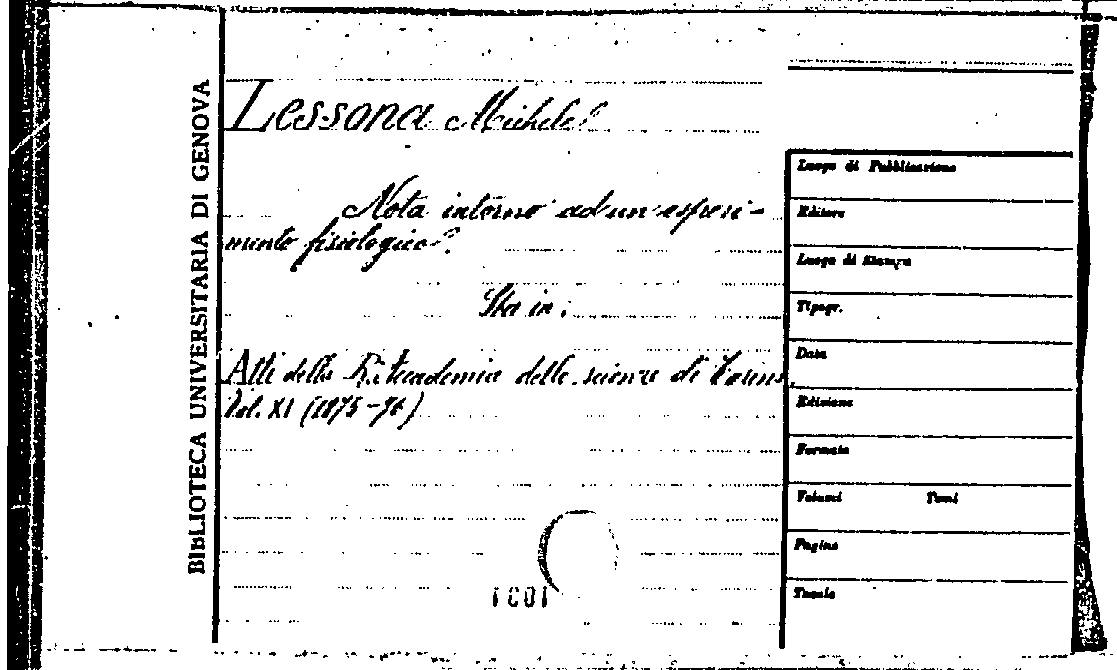 BIBLIOTECA UNIVERSITARIA DI GENOVA
Lessona Michele
Nota intorno ad un esperi-
mento fisiologico.
Sta in:
Atti della R. Accademia delle scienze di Torino.
Vol. XI (1875-76)
Luogo di Pubblicazione
Editore
Luogo di Stampa
Tipogr.
Data
Edizione
Formato
Volumi Tomi
Pagine
Tavole